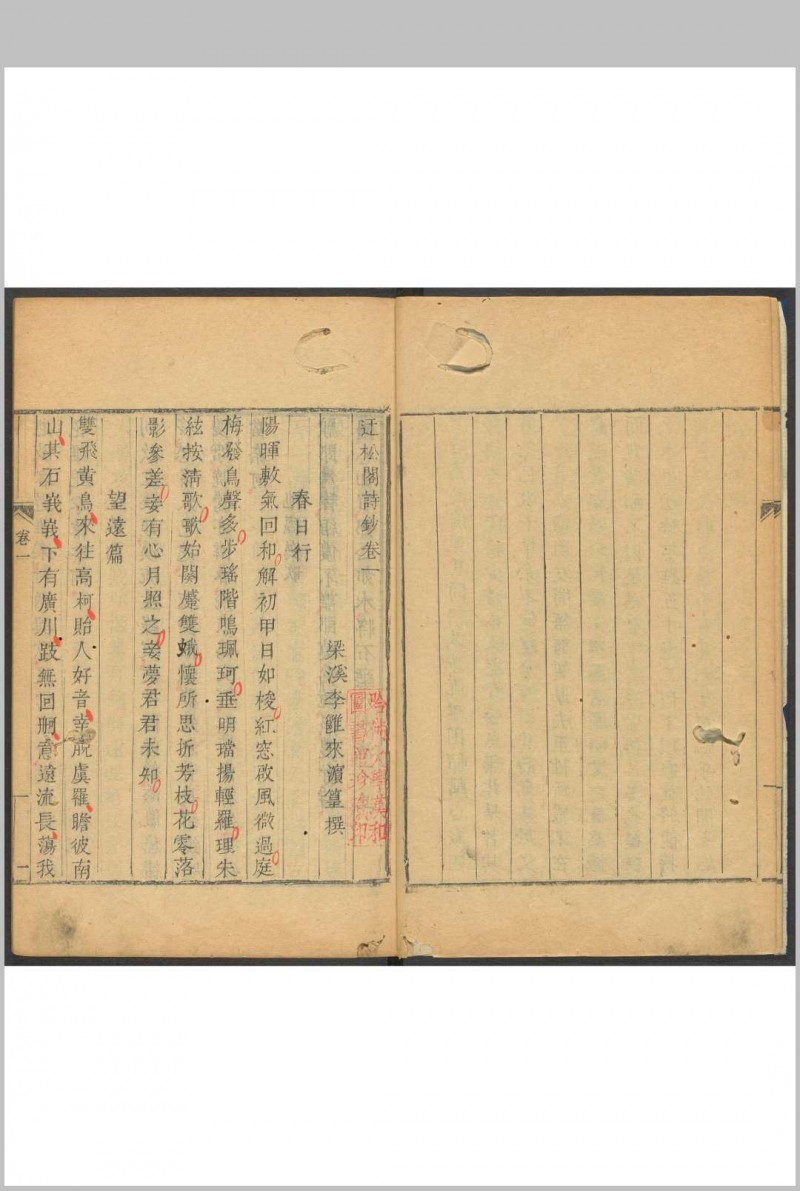 迂松閣詩鈔卷一
梁溪李雝來濵篁撰
春日行
陽暉敷氣回和解初甲日如梭紅窓啟風微過庭
梅發鳥聲多步瑤階鳴珮珂垂明璫揚輕羅理朱
絃按淸歌歌始闋蹙雙蛾懷所思折芳枝花零落
影參差妾有心月照之妾夢君君未知
望遠篇
雙飛黃鳥來往高柯貽人好音幸脫虞羅瞻彼南
山其石峩峩下有廣川跂無回刪意遠流長蕩我
卷一
一